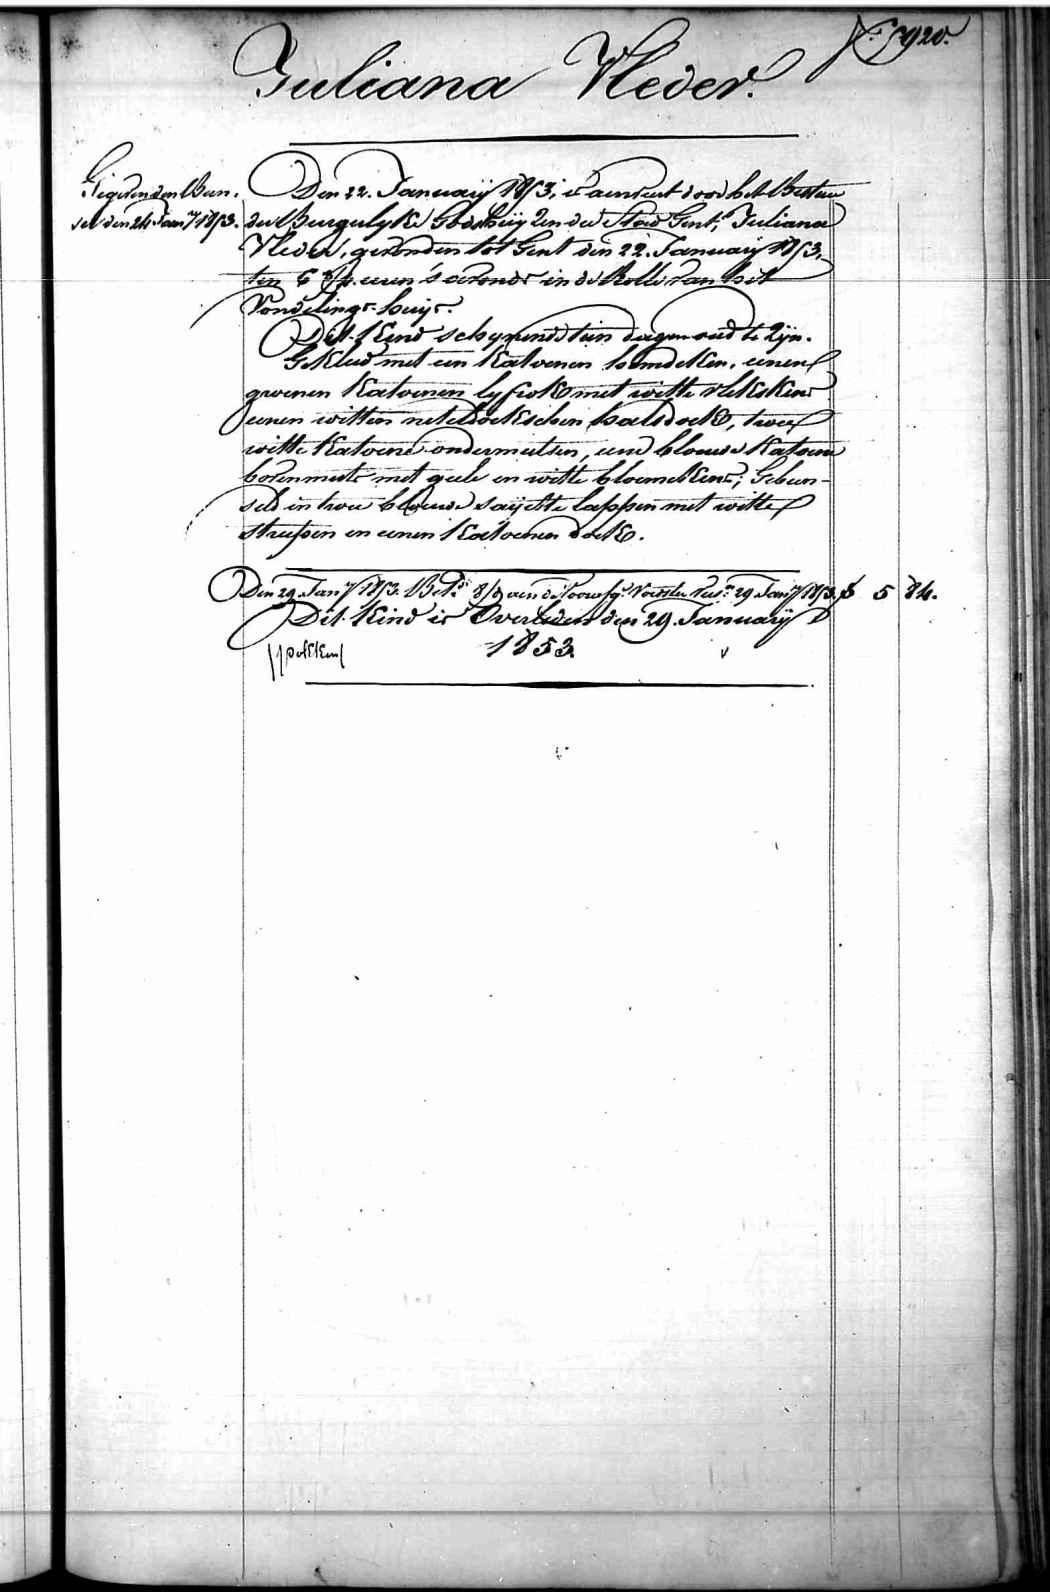 920.
Juliana Vleder.
Gegeven den Bun-
sel den 24 Jan.y 1853.
Den 22. January 1853, is aenveert door het Bestuer
der Burgelyke Godshuyzen der Stad Gent, Juliana
Vleder, gevonden tot Gent den 22. January 1853,
ten 6 uren 's avonds in de Rolle van het
Vondelings-huys.
Dit Kind schynende tien dagen oud te zyn.
Gekleed met een katoenen hemdeken, eenen
groenen katoenen lyfrok met witte vlekskens
eenen witten neteldoekschen halsdoek, twee
witte katoene ondermutsen, eene blauwe katoene
bovenmuts met geele en witte bloemekens; Gebun-
seld in twee blauwe sayette lappen met witte
streepen en eenen katoenen doek.
Den 29 Jan.y 1853. Bet. aen de Voorsz. Voedster 29 Jan.y 1853. 5 84.
Dit Kind is Overleden den 29. January
1853.